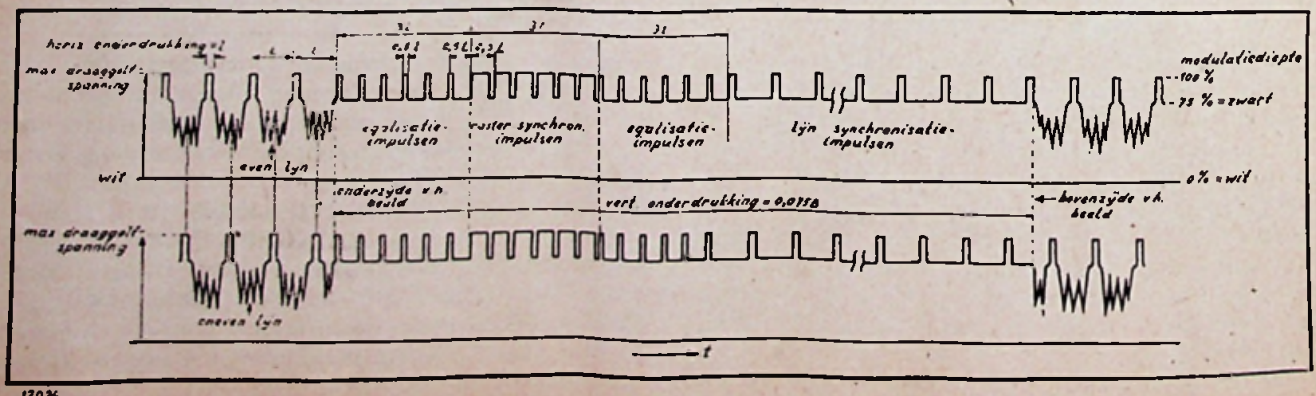 3L 3L 3L
horiz onderdrukking
L L
0,5 L 0,5 L
max draaggolf-
spanning
modulatiediepte
100 %
75 % = zwart
egalisatie-
impulsen
raster synchron.
impulsen
egalisatie-
impulsen
lijn synchronisatie-
impulsen
even lijn
wit
0% = wit
onderzijde v.h.
beeld
vert. onderdrukking = 0,075B
bovenzijde v.h.
beeld
max draaggolf-
spanning
oneven lijn
t